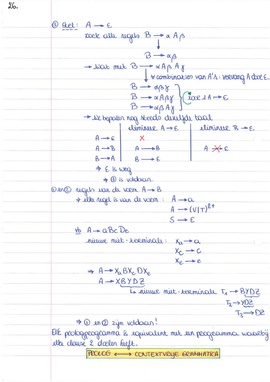 26.
① Stel: A → ε
zoek alle regels B → α A β
B → αβ
→ Wat met B → α A β A γ
∀ combinaties van A's: vervang A door ε
B → αβγ
B → αβAγ
B → αAβγ
→ We bepalen nog steeds dezelfde taal
elimineer A → ε
elimineer B → ε
A → ε X
B → A A → B A → ε
B → A B → A
→ ε is weg
→ ① is voldaan
regels van de vorm A → B
→ elke regel is van de vorm: A → a
A → (V|T)²⁺
S → ε
Vb A → aBcDe
nieuwe niet-terminals: Xa → a
Xc → c
Xe → e
→ A → Xa B Xc D Xe
A → XBYDZ
nieuwe niet-terminals T1 → BYDZ
T2 → YDZ
T3 → DZ
→ ① en ② zijn voldaan!
Elk prologprogramma is equivalent met een programma waarbij
elke clause 2 doelen heeft.
PROLOG ⟷ CONTEXTVRIJE GRAMMATICA